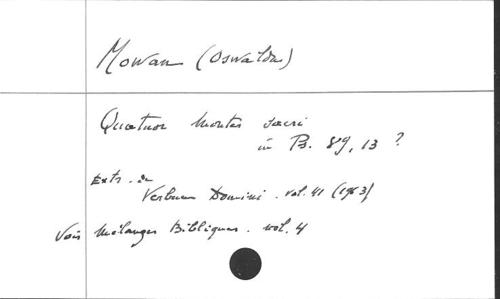 Mowan (Oswaldus)
Quatuor montes sacri
in Ps. 89, 13 ?
Extr. de
Verbum Domini. vol. 41 (1963)
Voir Mélanges Bibliques. vol. 4